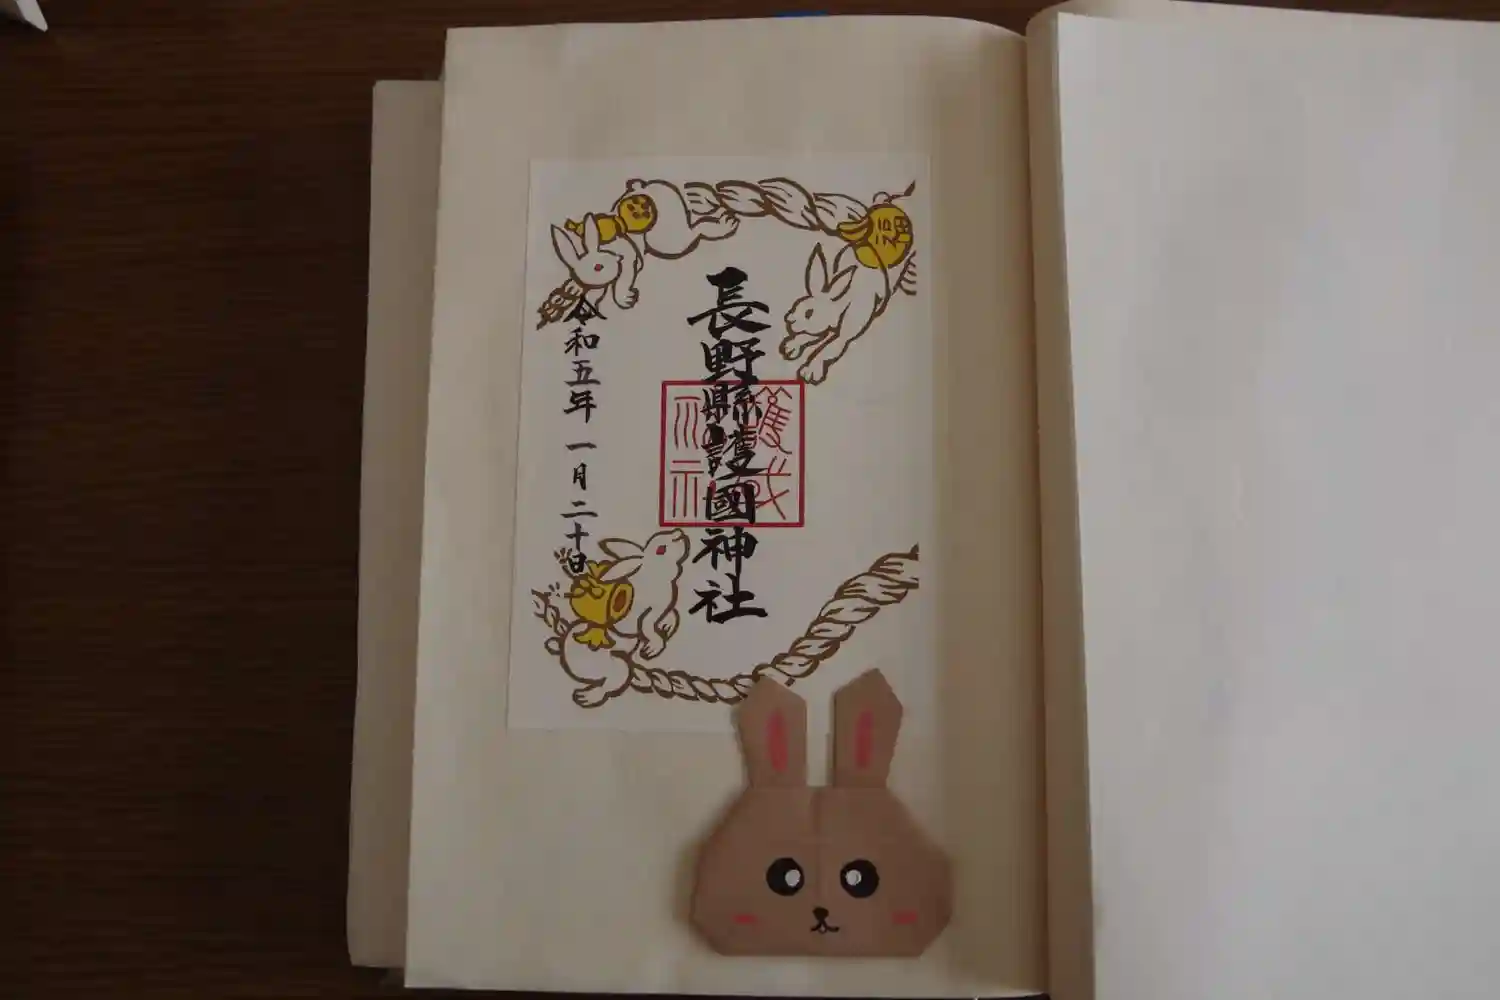 長野縣護國神社
令和五年 一月二十日
福